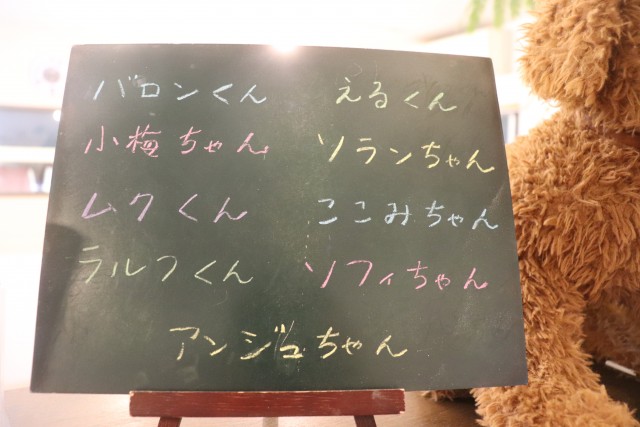 バロンくん えるくん
小梅ちゃん ソランちゃん
ムクくん ここみちゃん
ラルフくん ソフィちゃん
アンジュちゃん